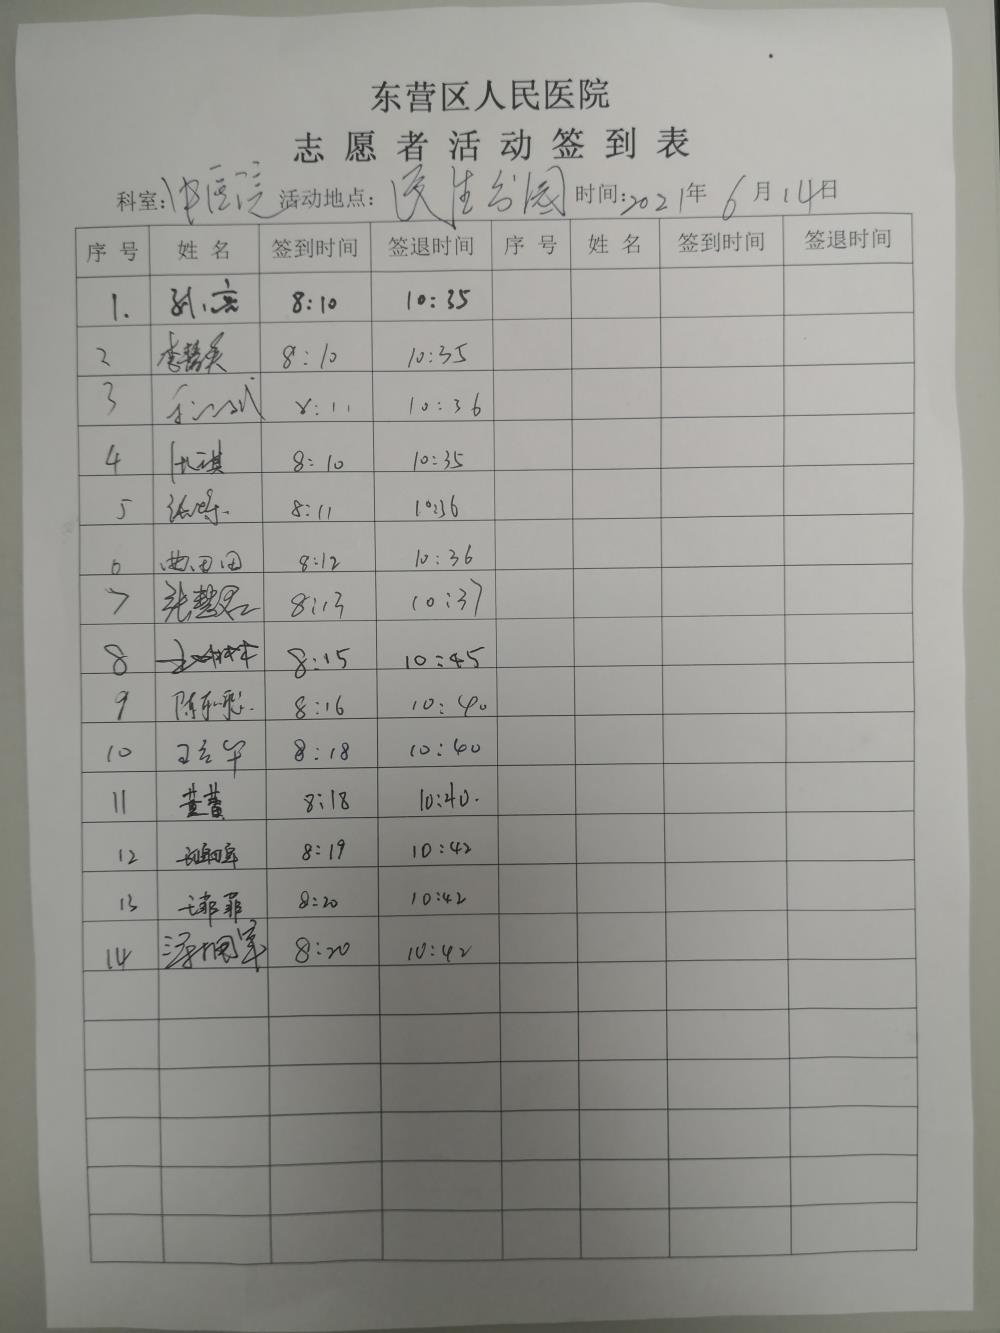 东营区人民医院
志愿者活动签到表
科室: 中医院 活动地点: 民生公园 时间: 2021年 6月 14日
序号 姓名 签到时间 签退时间 序号 姓名 签到时间 签退时间
1. 孙亮 8:10 10:35
2 李慧英 8:10 10:35
3 8:11 10:36
4 8:10 10:35
5 8:11 10:36
6 曲田田 8:12 10:36
7 张慧君 8:13 10:37
8 8:15 10:45
9 8:16 10:40
10 8:18 10:40
11 董蕾 8:18 10:40.
12 8:19 10:42
13 王菲菲 8:20 10:42
14 8:20 10:42